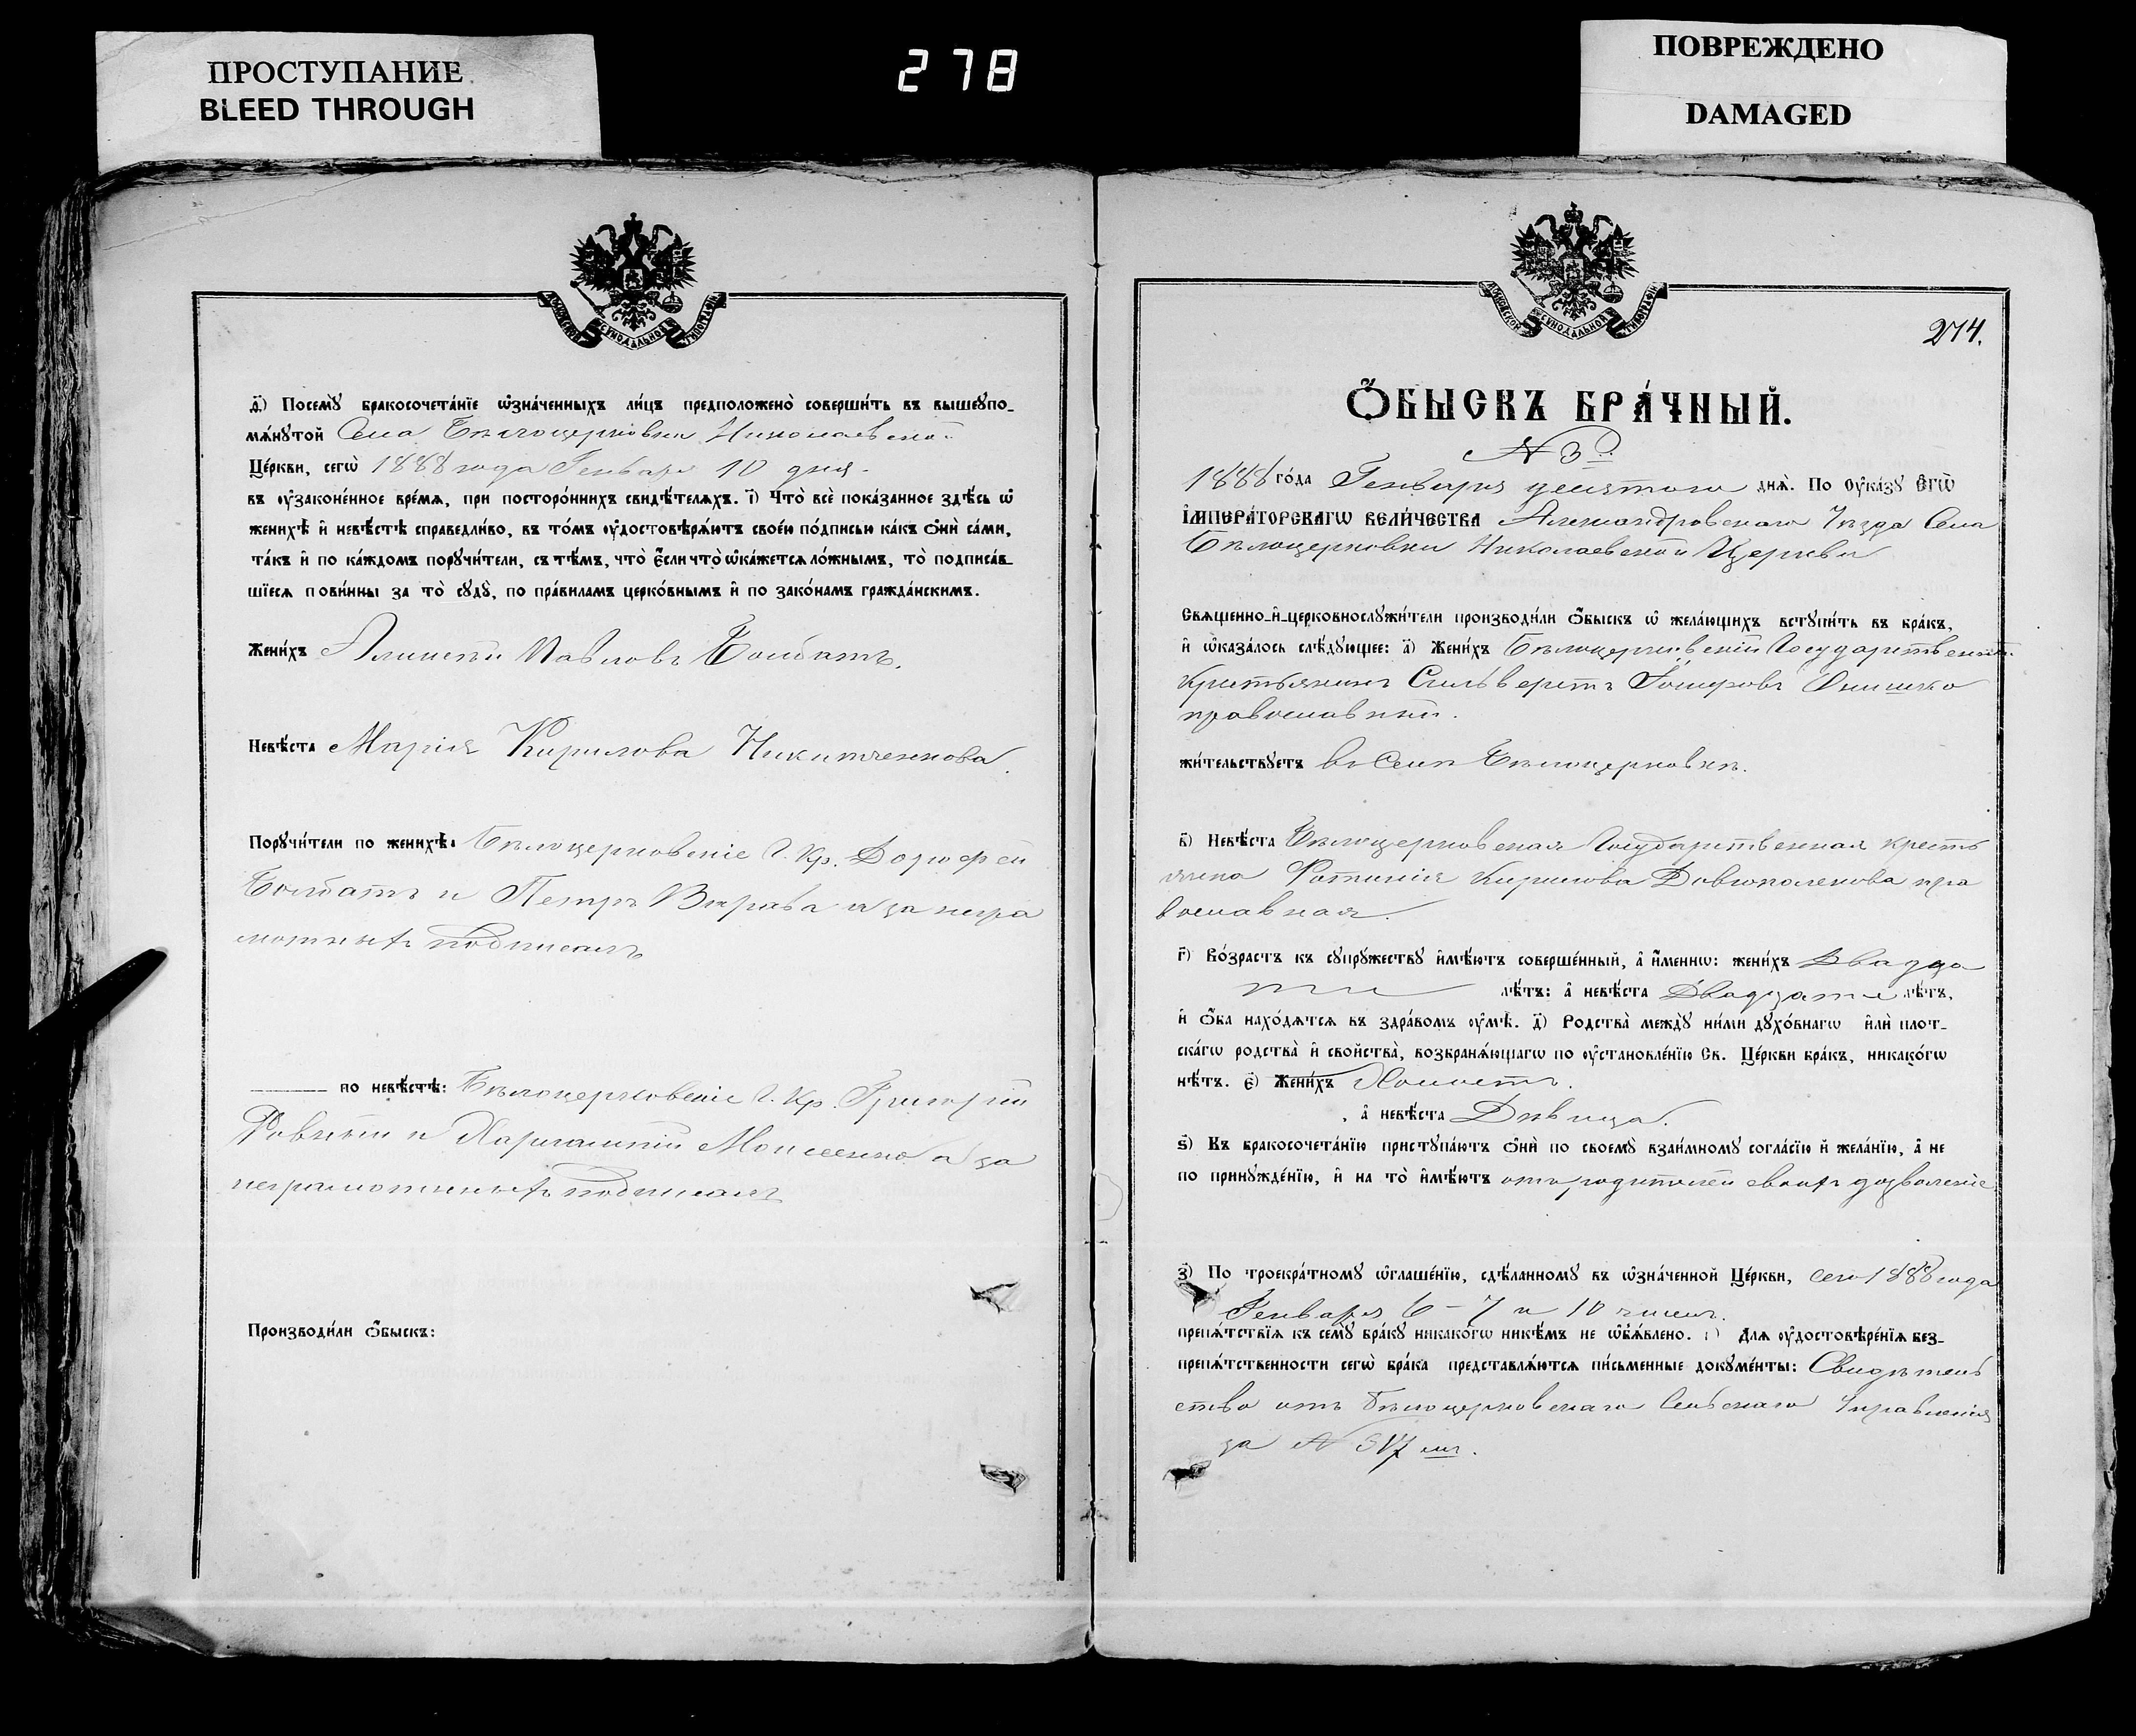 ПРОСТУПАНИЕ
BLEED THROUGH
278
ПОВРЕЖДЕНО
DAMAGED
МОСКОВСКОЙ СѴНОДАЛЬНОЙ ТѴПОГРАФІИ
д҃) Посемꙋ̀ бракосочета́нїе ѡ҆зна́ченныхъ ли́цъ предположено̀ соверши́ть въ вышеꙋпо-
мѧ́нꙋтой Села Бѣлоцерковки Николаевской
Це́ркви, сегѡ̀ 1888 года Генваря 10 дня.
въ ѹ҆зако́не́нное вре́мѧ, при посторо́ннихъ свидѣ́телѧхъ. і҃) Что̀ всѐ пока́занное здѣ́сь ѡ҆
женихѣ̀ и҆ невѣ́стѣ справедли́во, въ то́мъ ѹ҆достовѣрѧ́ютъ свое́ю по́дписью ка́къ ѻ҆нѝ са́ми,
та́къ и҆ по ка́ждомъ порꙋчи́тели, съ тѣ́мъ, что̀ є҆́сли что̀ ѡ҆ка́жетсѧ ло́жнымъ, то̀ подписа́в-
шїесѧ пови́нны за то̀ сꙋдꙋ̀, по пра́виламъ церко́внымъ и҆ по зако́намъ гражда́нскимъ.
Жени́хъ Алексѣй Павловъ Болбатъ.
Невѣ́ста Марія Кирилова Никитченкова.
Порꙋчи́тели по женихѣ̀: Бѣлоцерковскіе Г. Кр. Дорофей
Болбатъ и Петръ а за негра
мотныхъ подписалъ
по невѣ́стѣ: Бѣлоцерковскіе Г. Кр. Григорій
и Харлампій Моисеенко а за
неграмотныхъ подписалъ
Производи́ли ѻ҆́быскъ:
МОСКОВСКОЙ СѴНОДАЛЬНОЙ ТѴПОГРАФІИ
274.
Ѻ҆́БЫСКЪ БРА́ЧНЫЙ.
N 3й
1888 го́да Генваря десятого днѧ̀. По ѹ҆ка́зꙋ Є҆гѡ̀
І҆МПЕРА́ТОРСКАГѠ ВЕЛИ́ЧЕСТВА Александровскаго Уѣзда Села
Бѣлоцерковки Николаевской Церкви
Свѧще́нно-и҆-церковнослꙋжи́тели производи́ли ѻ҆́быскъ ѡ҆ жела́ющихъ встꙋпи́ть въ бра́къ,
и҆ ѡ҆каза́лось слѣ́дꙋющее: а҃) Жени́хъ Бѣлоцерковскій Государственный
крестьянинъ Сильверстъ Онишко
православный.
жи́тельствꙋетъ въ Селѣ Бѣлоцерковкѣ.
в҃) Невѣ́ста Бѣлоцерковская Государственная кресть
янка Фотинія Кирилова Довгополекова пра
вославная.
г҃) Во́зрастъ къ сꙋпрꙋ́жествꙋ и҆мѣ́ютъ соверше́нный, а҆ и҆́меннѡ: жени́хъ Двадца
ти лѣ́тъ: а҆ невѣ́ста Двадцати лѣ́тъ,
и҆ ѻ҆́ба нахо́дѧтсѧ въ здра́вомъ ѹ҆мѣ̀. д҃) Родства̀ междꙋ̀ ни́ми дꙋхо́внагѡ и҆лѝ плот-
ска́гѡ родства̀ и҆ сво́йства̀, возбранѧ́ющагѡ по ѹ҆становле́нїю Св. Це́ркви бра́къ, никако́гѡ
нѣ́тъ. є҃) Жени́хъ Холостъ.
, а҆ невѣ́ста Дѣвица.
ѕ҃) Къ бракосочета́нїю пристꙋпа́ютъ ѻ҆нѝ по своемꙋ̀ взаи́мномꙋ согла́сїю и҆ жела́нїю, а҆ не
по принꙋжде́нїю, и҆ на то̀ и҆мѣ́ютъ отъ родителей своихъ дозволеніе
з҃) По троекра́тномꙋ ѡ҆глаше́нїю, сдѣ́ланномꙋ въ ѡ҆зна́ченной Це́ркви, сего 1888 года
Генваря 6 - 7 и 10 чиселъ.
препѧ́тствїѧ къ семꙋ̀ бра́кꙋ никако́гѡ никѣ́мъ не ѡ҆б̾ѧ́влено. и҃) Длѧ ѹ҆достовѣре́нїѧ без-
препѧ́тственности сегѡ̀ бра́ка представлѧ́ютсѧ пи́сьменные докꙋме́нты: Свидѣтель
ство отъ Бѣлоцерковскаго Сельскаго Управленія
за N